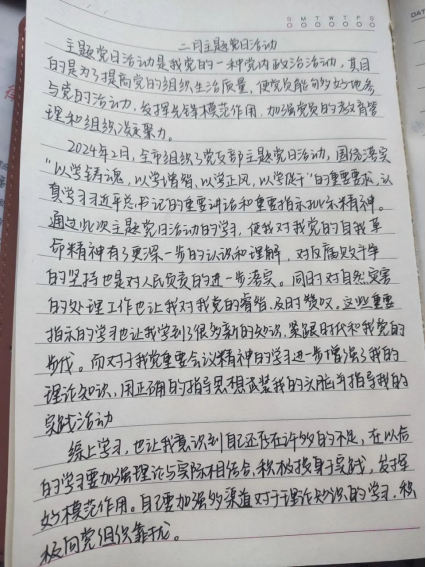 S M T W T F S
DAT
二月主题党日活动
主题党日活动是我党的一种党内政治活动,其目
的是为了提高党的组织生活质量,使党员能够更好地参
与党的活动,发挥先锋模范作用,加强党员的教育管
理和组织凝聚力。
2024年2月,全部组织了党支部主题党日活动,围绕落实
“以学铸魂,以学增智,以学正风,以学促干”的重要要求,认
真学习习近平总书记的重要讲话和重要指示批示精神。
通过此次主题党日活动的学习,使我对我党的自我革
命精神有了更深一步的认识和理解,对反腐败斗争
的坚持也是对人民负责的进一步落实。同时对自然灾害
的处理工作也让我对我党的睿智、及时赞叹。这些重要
指示的学习也让我学到了很多新的知识,紧跟时代和我党的
步伐。而对于我党重要会议精神的学习进一步增强了我的
理论知识,用正确的指导思想武装我的头脑并指导我的
实践活动
综上学习,也让我意识到自己还存在许多的不足,在以后
的学习要加强理论与实际相结合,积极投身于实践,发挥
好模范作用。自己要加强多渠道对于理论知识的学习,积
极向党组织靠拢。